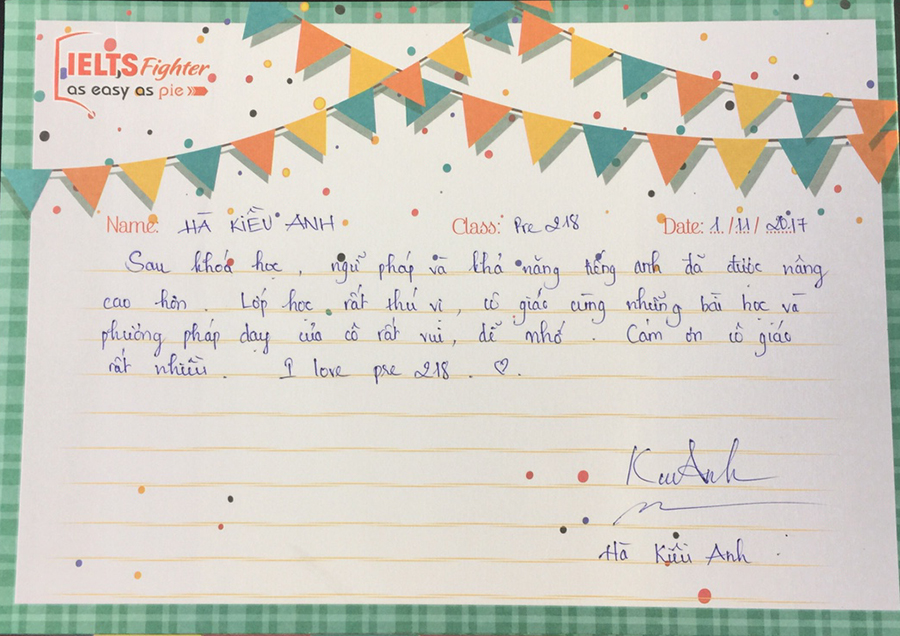 IELTS Fighter
as easy as pie
Name: HÀ KIỀU ANH Class: Pre 218 Date: 1/11/2017
Sau khoá học, ngữ pháp và khả năng tiếng anh đã được nâng
cao hơn. Lớp học rất thú vị, cô giáo cùng những bài học và
phương pháp dạy của cô rất vui, dễ nhớ. Cảm ơn cô giáo
rất nhiều. I love pre 218. ♡.
Hà Kiều Anh